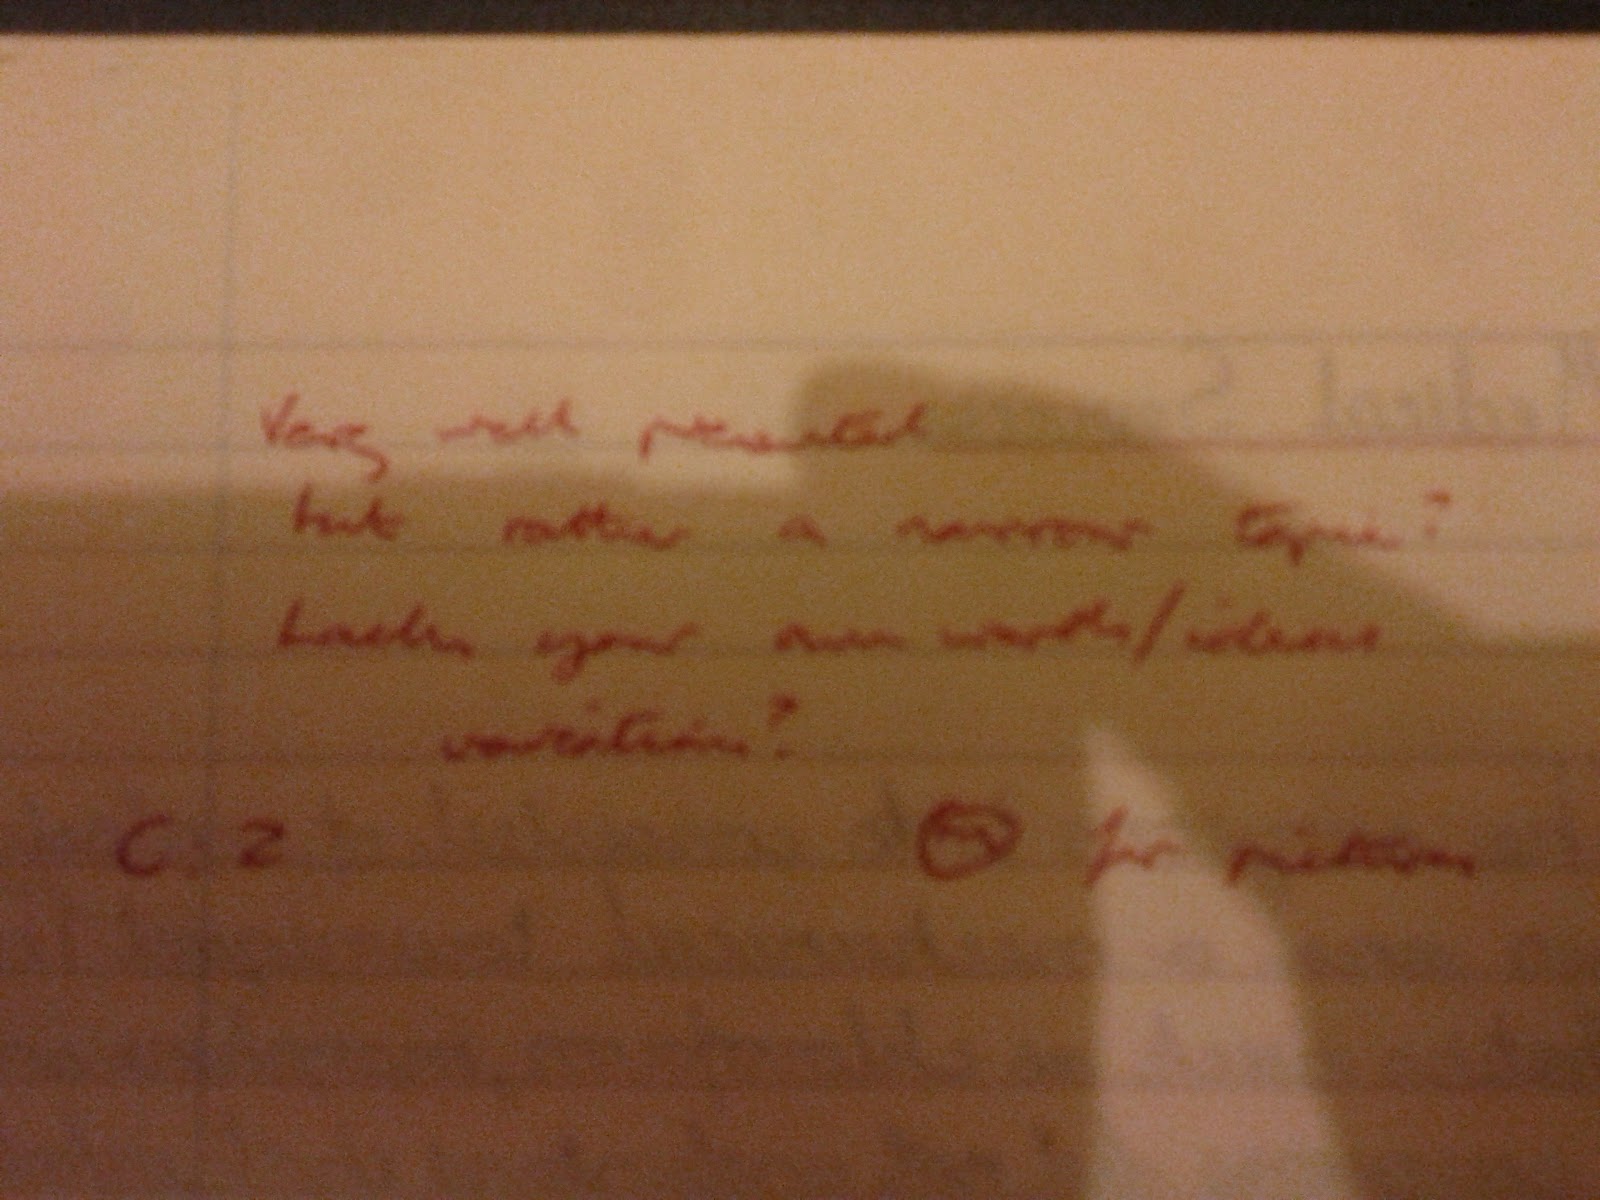 Very well presented
but rather a narrow topic?
Lacks your own words/ideas
variation?
C. 2 for pictures